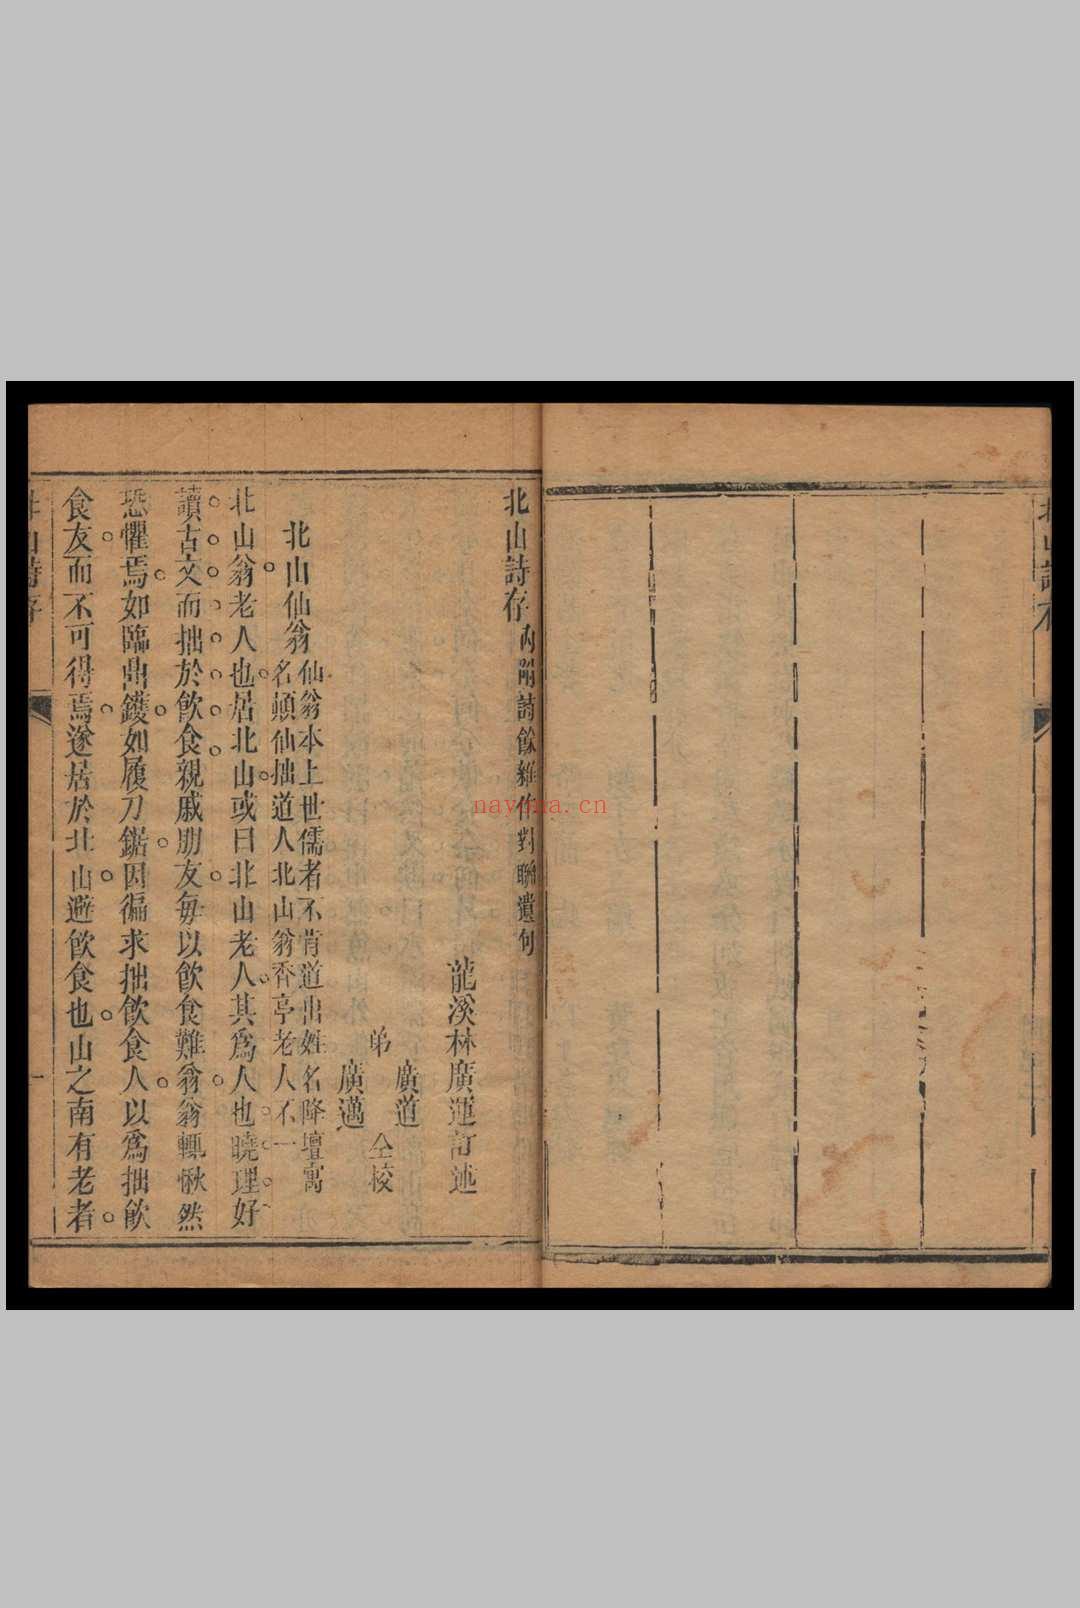 北山詩存
北山詩存內附詩餘雜作對聯遺句
龍溪林廣運訂述
弟
廣道
廣邁
仝校
北山仙翁
仙翁本上世儒者不肯道出姓名降壇寓
名顛仙拙道人北山翁香亭老人不一
北山翁老人也居北山或曰北山老人其為人也曉理好
讀古文而拙於飲食親戚朋友每以飲食難翁翁輒愀然
恐懼焉如臨鼎鑊如履刀鋸因徧求拙飲食人以為拙飲
食友而不可得焉遂居於北山避飲食也山之南有老者
北山詩存
一
nayona.cn